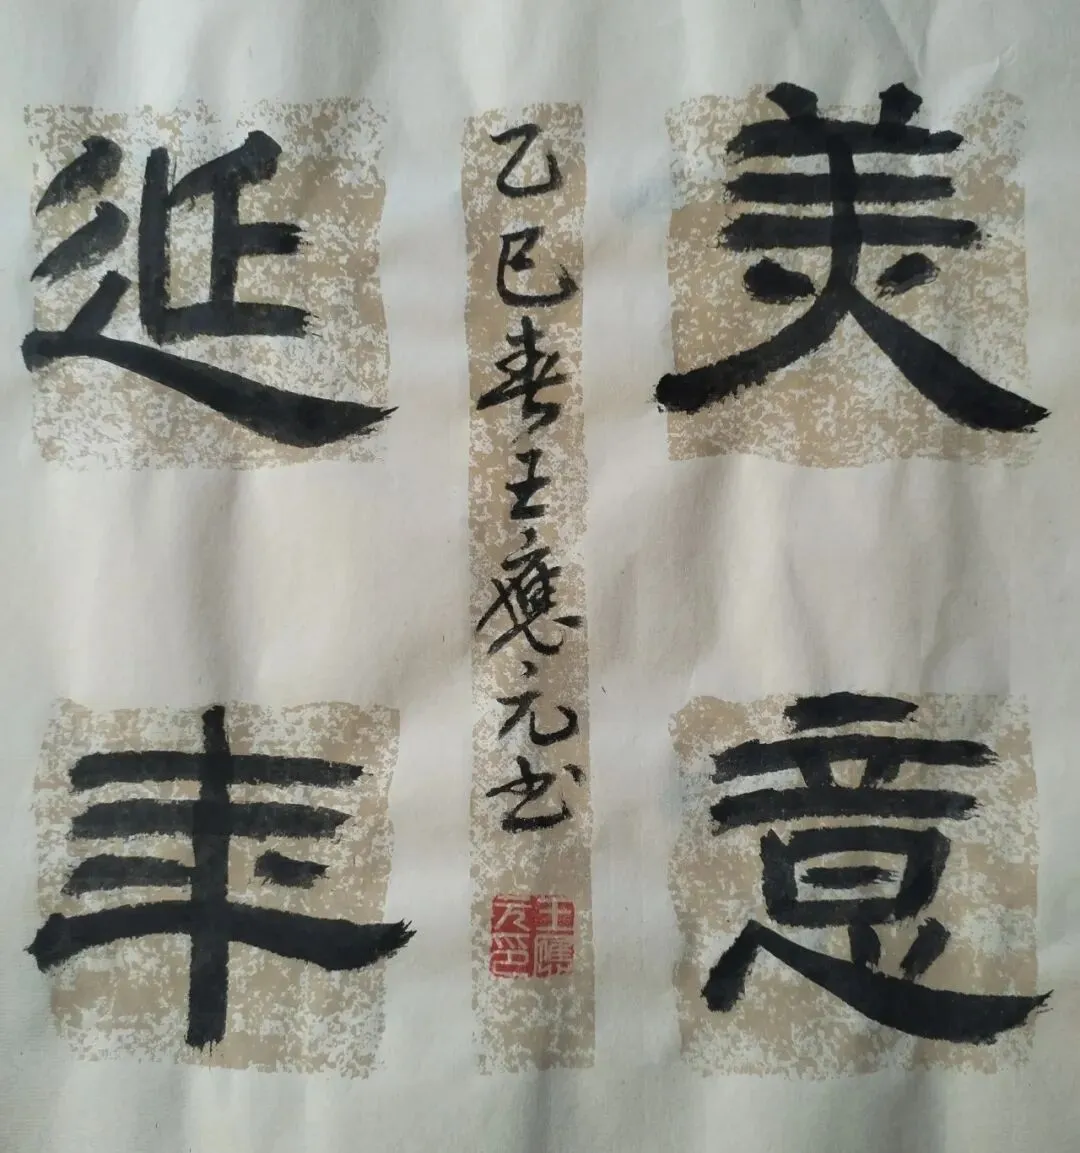 美意
延年
乙巳春王應元书
王應元印